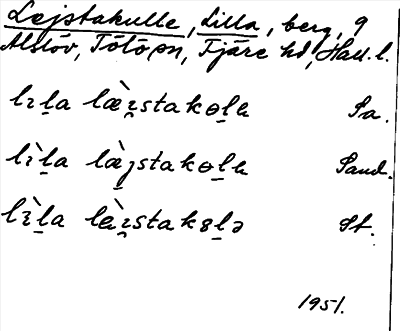 Lejstakulle, Lilla, berg, 9
Alslöv, Tölö sn, Fjäre hd, Hall. l.
lɪl̠a læ̀ɪ̠stakɵl̠ɐ Sa.
lɪ̀l̠a læ̀j̠stakɵl̠ɐ Sand.
lɪ̀l̠a læ̀ɪ̠stakɞl̠ə St.
1951.